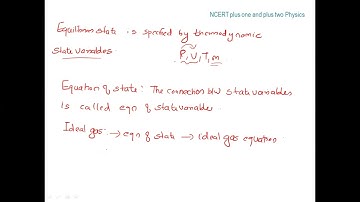 NCERT plus one and plus two Physics
Equilibrium state is specified by thermodynamic
state variables.
P, V, T, m
Equation of state : The connection b/w state variables
is called eqn of state variables
Ideal gas → eqn of state → ideal gas equation